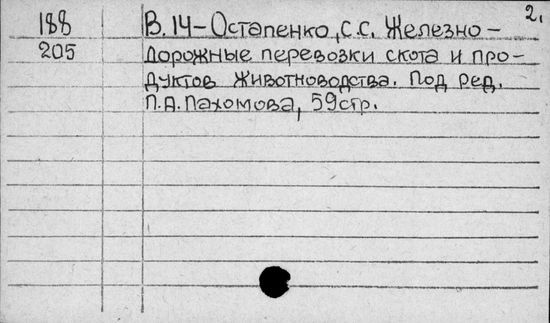 2.
188 В. 14 - Остапенко, С.С. Железно -
205 дорожные перевозки скота и про-
дуктов животноводства. Под ред.
П.А. Пахомова, 59 стр.